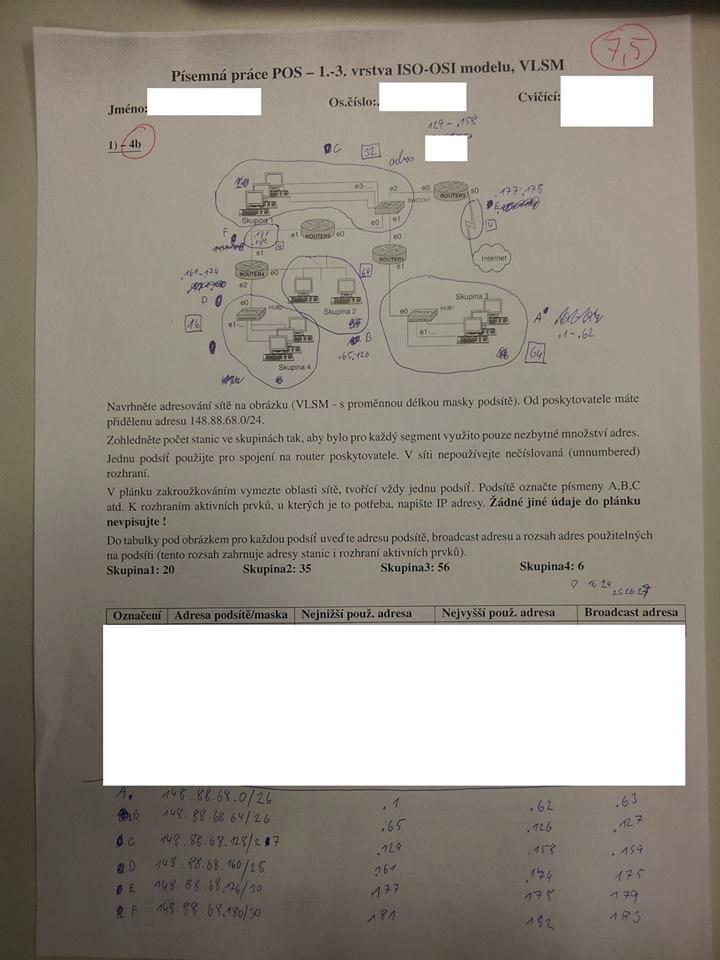 7,5
Písemná práce POS – 1.-3. vrstva ISO-OSI modelu, VLSM
Jméno: Os.číslo:. Cvičící:
129 - .158
1) – 4b
C 32
e3-... e2 e0 s0
.177-.178
SWITCH1
ROUTER3
Skupina 1
e0 e1
E
F
181
182
4
4
e1 e0
ROUTER5
e0
e1
Internet
ROUTER1
.161-.174
ROUTER4
64
e1
e2
D
e0
HUB2
Skupina 2
e0
HUB1
Skupina 3
A
16
e1-...
e1-...
B
.1-.62
.65,126
64
Skupina 4
Navrhněte adresování sítě na obrázku (VLSM - s proměnnou délkou masky podsítě). Od poskytovatele máte
přidělenu adresu 148.88.68.0/24.
Zohledněte počet stanic ve skupinách tak, aby bylo pro každý segment využito pouze nezbytné množství adres.
Jednu podsíť použijte pro spojení na router poskytovatele. V síti nepoužívejte nečíslovaná (unnumbered)
rozhraní.
V plánku zakroužkováním vymezte oblasti sítě, tvořící vždy jednu podsíť. Podsítě označte písmeny A,B,C
atd. K rozhraním aktivních prvků, u kterých je to potřeba, napište IP adresy. Žádné jiné údaje do plánku
nevpisujte !
Do tabulky pod obrázkem pro každou podsíť uveďte adresu podsítě, broadcast adresu a rozsah adres použitelných
na podsíti (tento rozsah zahrnuje adresy stanic i rozhraní aktivních prvků).
Skupina1: 20 Skupina2: 35 Skupina3: 56 Skupina4: 6
16 24
25 26 27
Označení Adresa podsítě/maska Nejnižší použ. adresa Nejvyšší použ. adresa Broadcast adresa
A. 148.88.68.0/26 .1 .62 .63
B 148.88.68.64/26 .65 .126 .127
C 148.88.68.128/27 .129 .158 .159
D 148.88.68.160/28 .161 .174 175
E 148.88.68.176/30 177 178 179
F 148.88.68.180/30 181 182 183